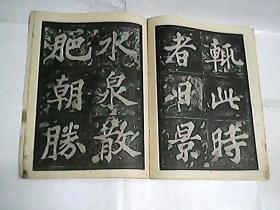 輒此時
者日景
水泉散
肥朝勝